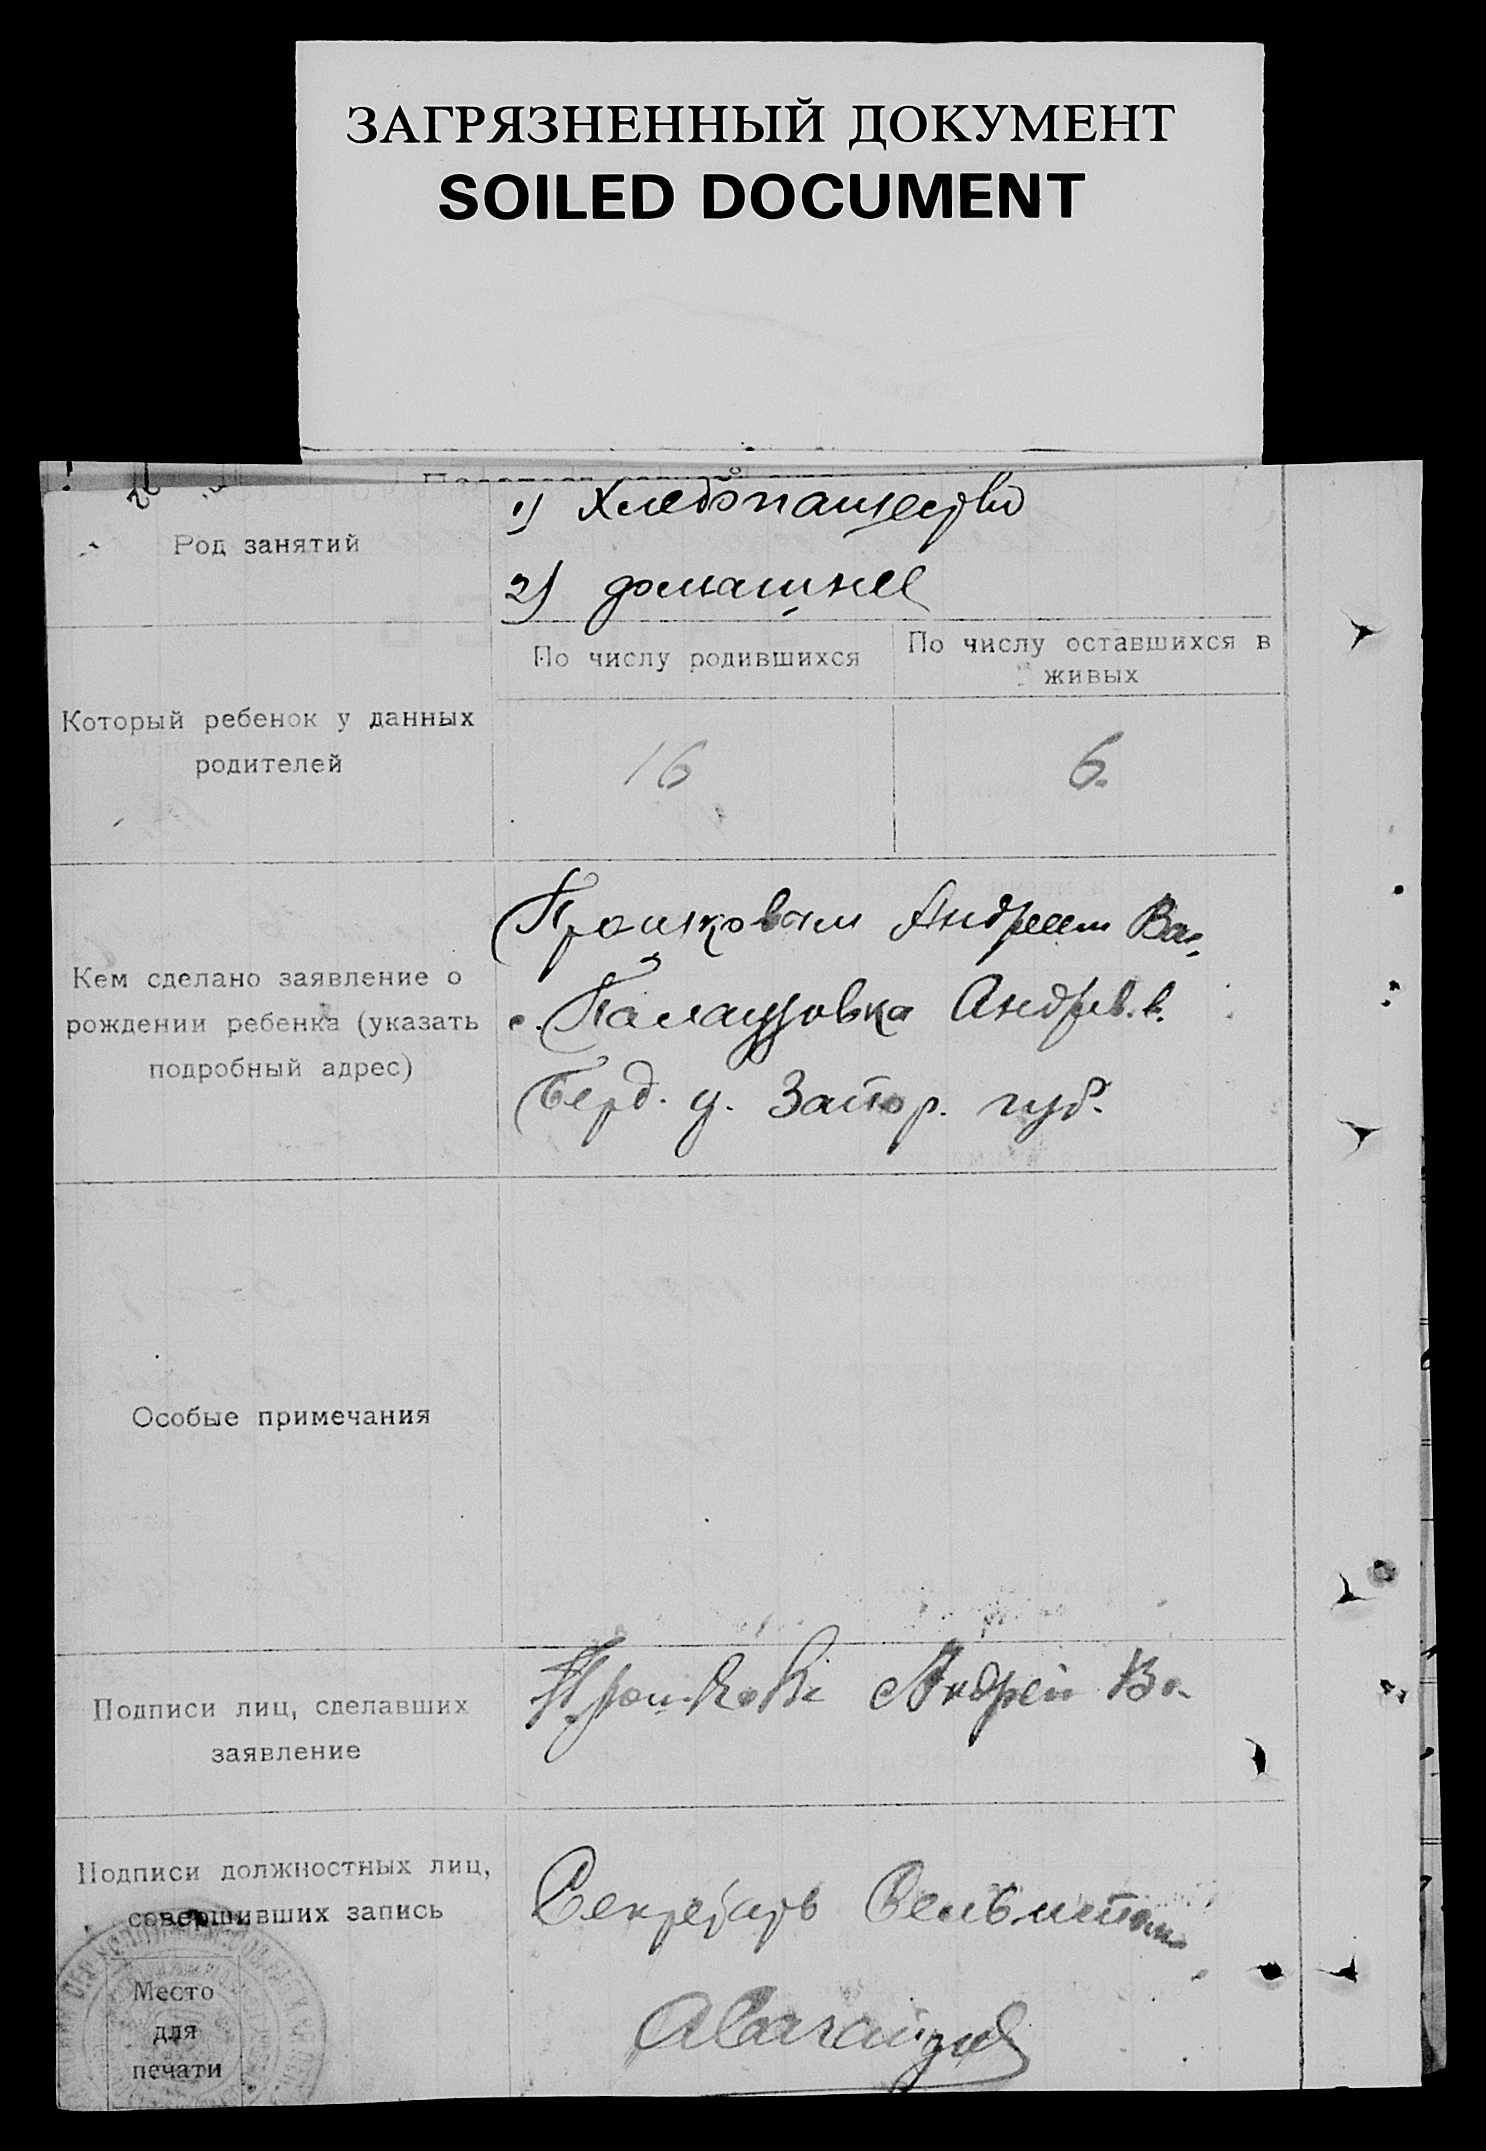 ЗАГРЯЗНЕННЫЙ ДОКУМЕНТ
SOILED DOCUMENT
Род занятий
1) Хлебопашество
2) домашнее
Который ребенок у данных
родителей
По числу родившихся
По числу оставшихся в
живых
16
6.
Кем сделано заявление о
рождении ребенка (указать
подробный адрес)
Прошковым Андреем Вас.
с. Палаузовка Андрив. в.
Берд. у. Запор. губ.
Особые примечания
Подписи лиц, сделавших
заявление
Андрей Ва.
Подписи должностных лиц,
совершивших запись
Секретарь
Место
для
печати